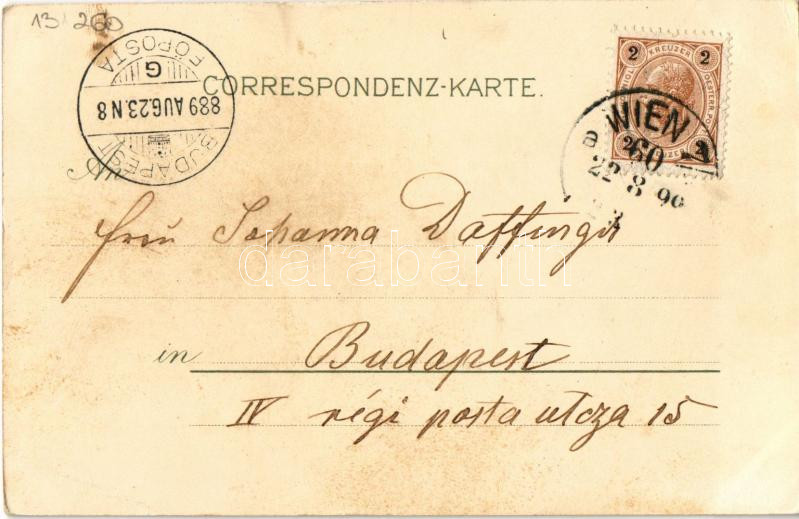 13 260
BUDAPEST
FŐPOSTA
889 AUG.23.N8
G
CORRESPONDENZ-KARTE.
2 KREUZER 2
2 2
WIEN
60
22 8 99
An
Frau Johanna Daffinger
darabanth
in Budapest
IV régi posta utcza 15